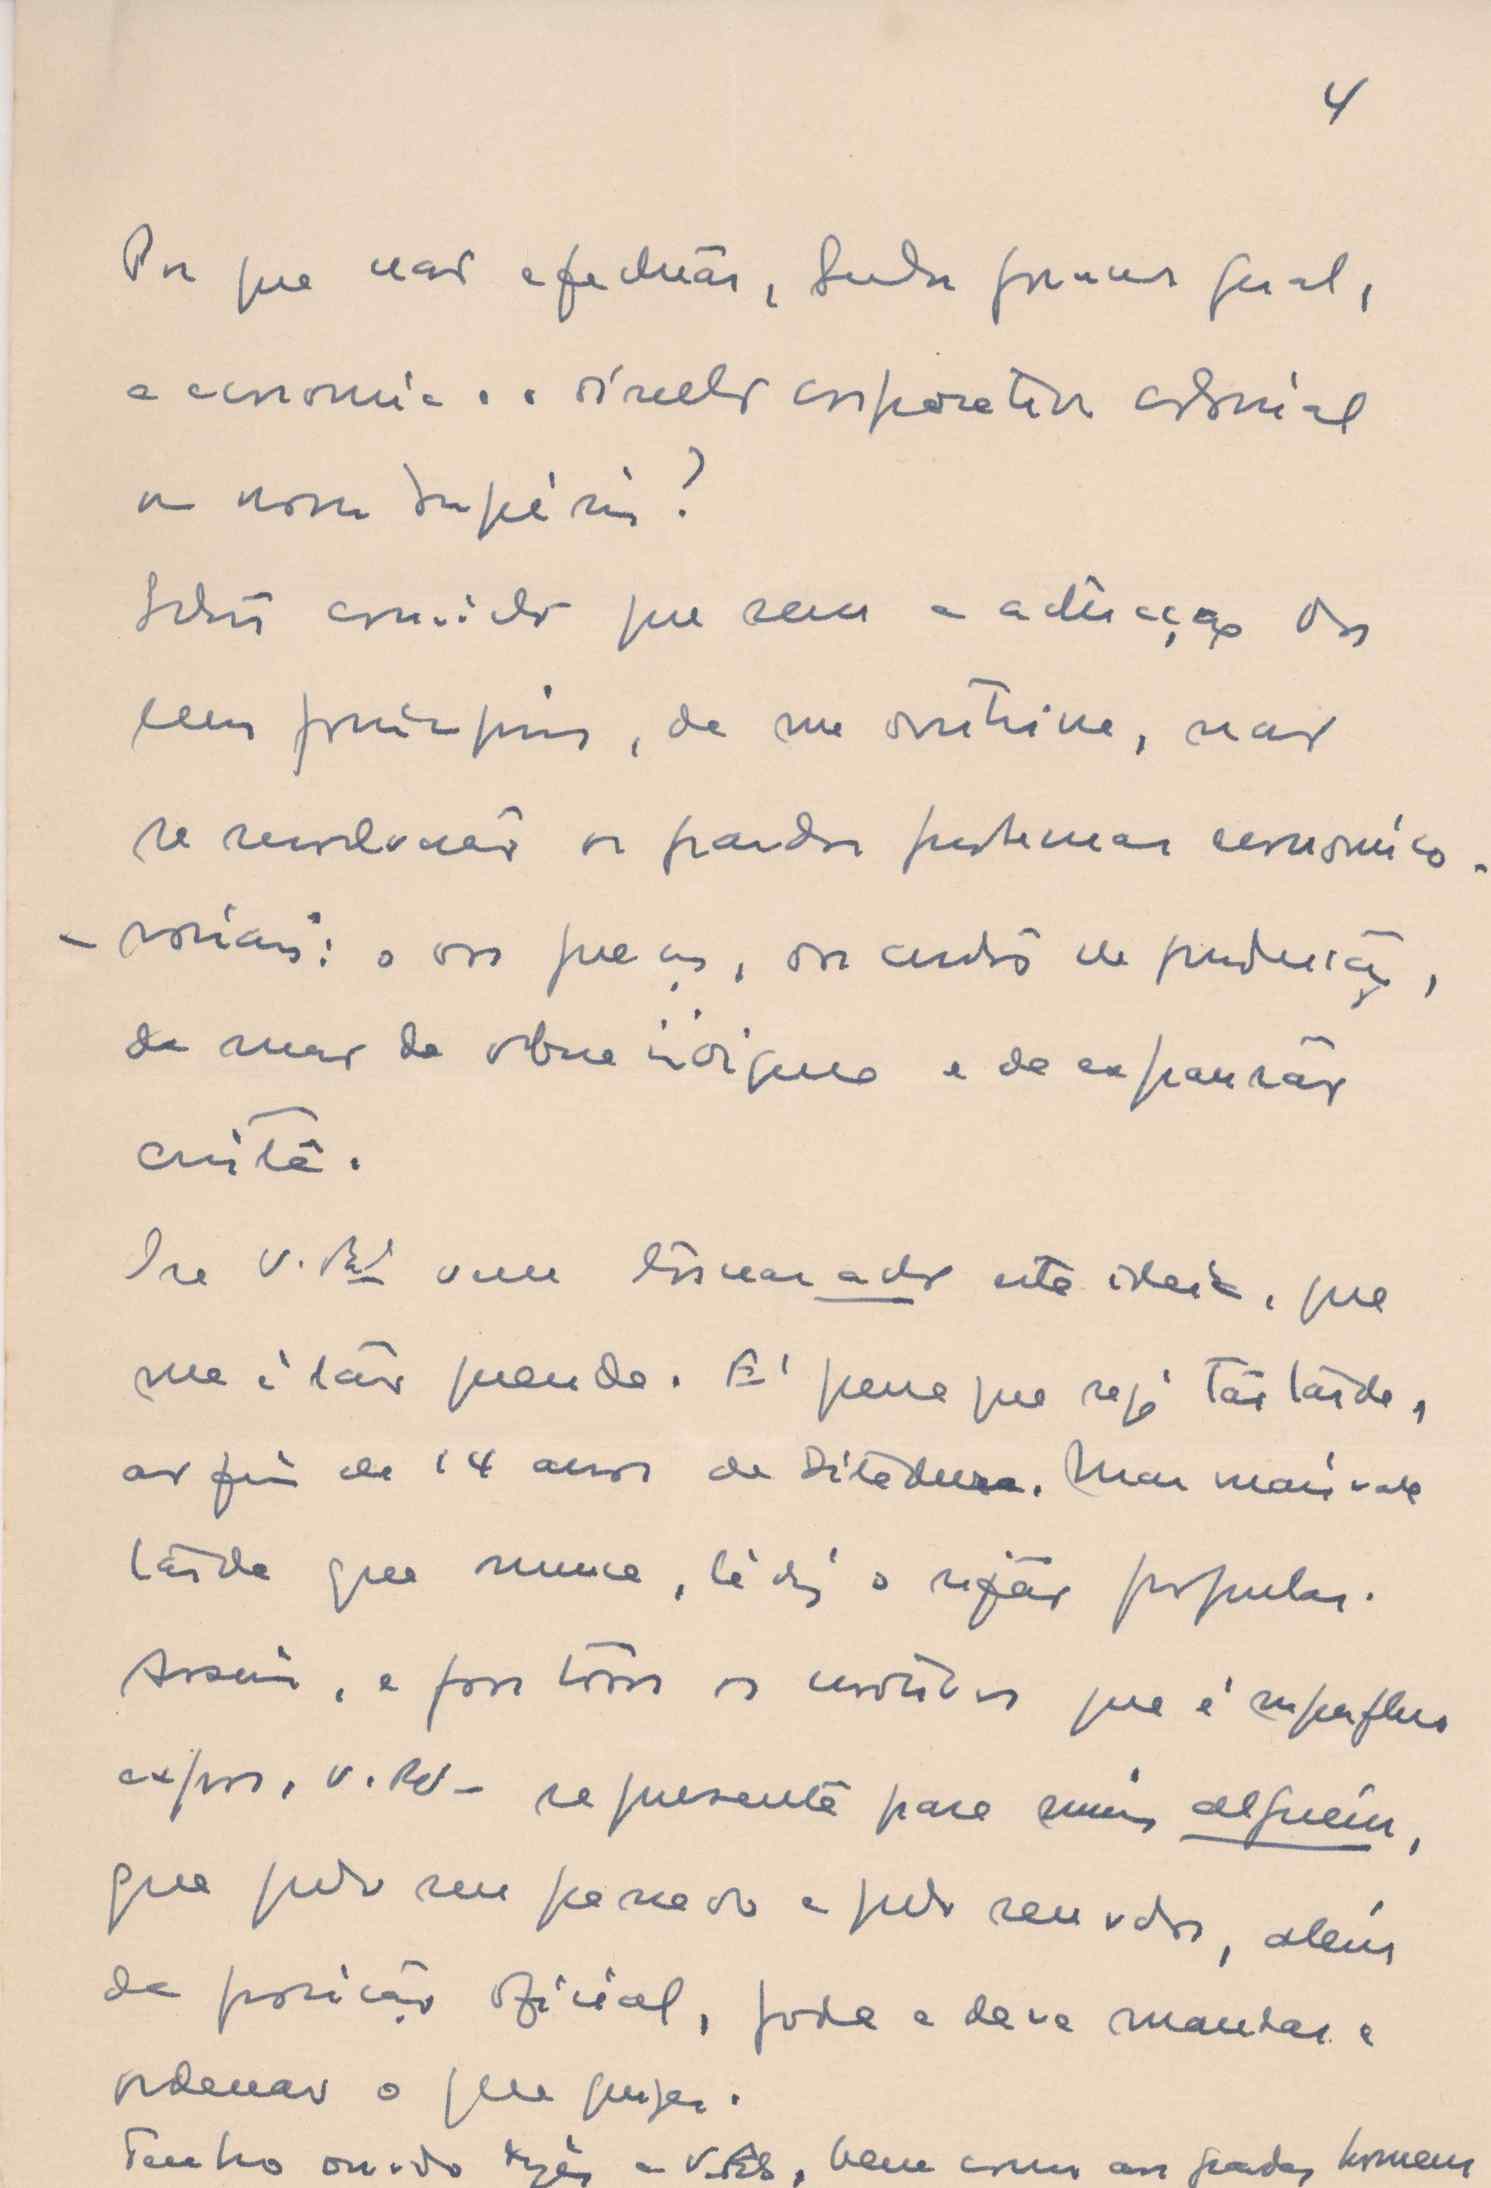 4
Por que não efectuar, sendo governo geral,
a economia e o direito corporativo colonial
no nosso Império?
Estou convencido que sem a adoção dos
seus princípios, da sua doutrina, não
se resolverão os grandes problemas economico-
-sociais: o dos preços, dos custos de produção,
da mão de obra indígena e de expansão
cristã.
Se V. Exª vem tornar acto esta ideia, que
me é tão querida. É pena que seja tão tarde,
ao fim de 14 anos de Ditadura. Mas mais vale
tarde que nunca, lá diz o rifão popular.
Assim, e por todos os motivos que é superfluo
expor, V. Exª representa para mim alguém,
que pelo seu passado e pelo seu valor, além
da posição oficial, pode e deve mandar e
ordenar o que quizer.
Tenho ouvido V. Exª, bem como aos grandes homens